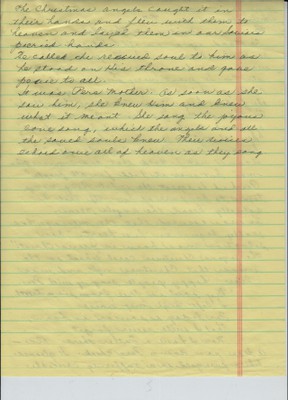 The Christmas angels caught it in
their hands and flew with them to
heaven and layed them in our Saviours
pierced hands.
He called the rescued soul to him as
He stood on His throne and gave
peace to all.
So was Pers Mother. As soon as she
saw him, she knew him and knew
what it meant. She sang the
song, which the angels and all
the saved souls knew. Their voices
echoed over all of heaven as they sang